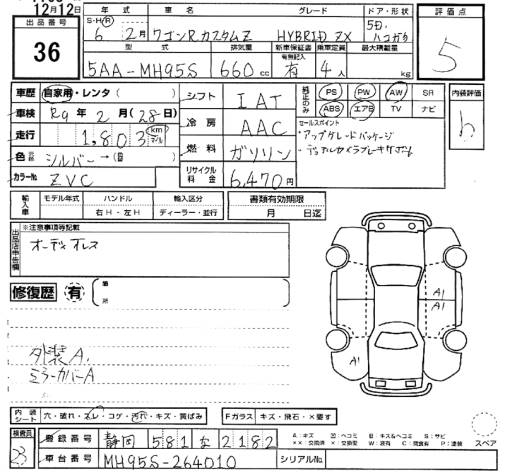 12月12日
出品番号
36
年式 車名 グレード ドア・形状
S・H・R 6年2月 ワゴンRカスタムZ HYBRID ZX 5D ハコガタ
評価点
5
型式 排気量 新車保証書 有無記入 乗車定員 最大積載量
5AA-MH95S 660cc 有 4人 kg
車歴 自家用・レンタ( )
車検 R9年2月(28日)
走行 1,803 km マイル
色 シルバー→( )
カラーNo ZVC
シフト IAT
冷房 AAC
燃料 ガソリン
リサイクル料金 6,470円
純正のみ PS PW AW SR
ABS エアB TV ナビ
内装評価
b
セールスポイント
・アップグレードパッケージ
輸入車 モデル年式 ハンドル 輸入区分
右H・左H ディーラー・並行
書類有効期限
月 日迄
出品店申告欄
※注意事項等記載
オーディオレス
修復歴 有
箇所
外装A1
ミラーカバーA
A1 A1
A1
内装シート 穴・破れ・スレ・コゲ・汚れ・キズ・黄ばみ
Fガラス キズ・飛石・×要す
検査員
登録番号 静岡 581 な 2182
車台番号 MH95S-264010
シリアルNo.
A:キズ U:ヘコミ B:キズ&ヘコミ S:サビ
スペア